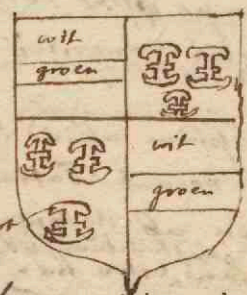 wit
groen
wit
groen